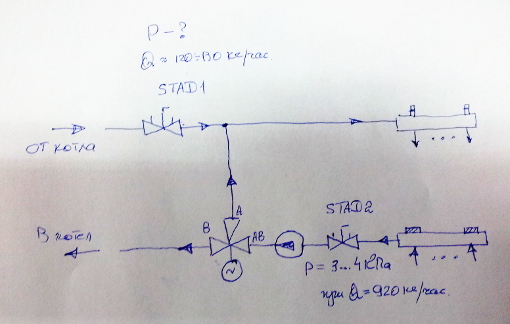 P - ?
Q = 120÷130 кг/час.
STAD1
ОТ котла
A
B
AB
STAD2
В котел
P = 3...4 КПа
при Q = 920 кг/час.